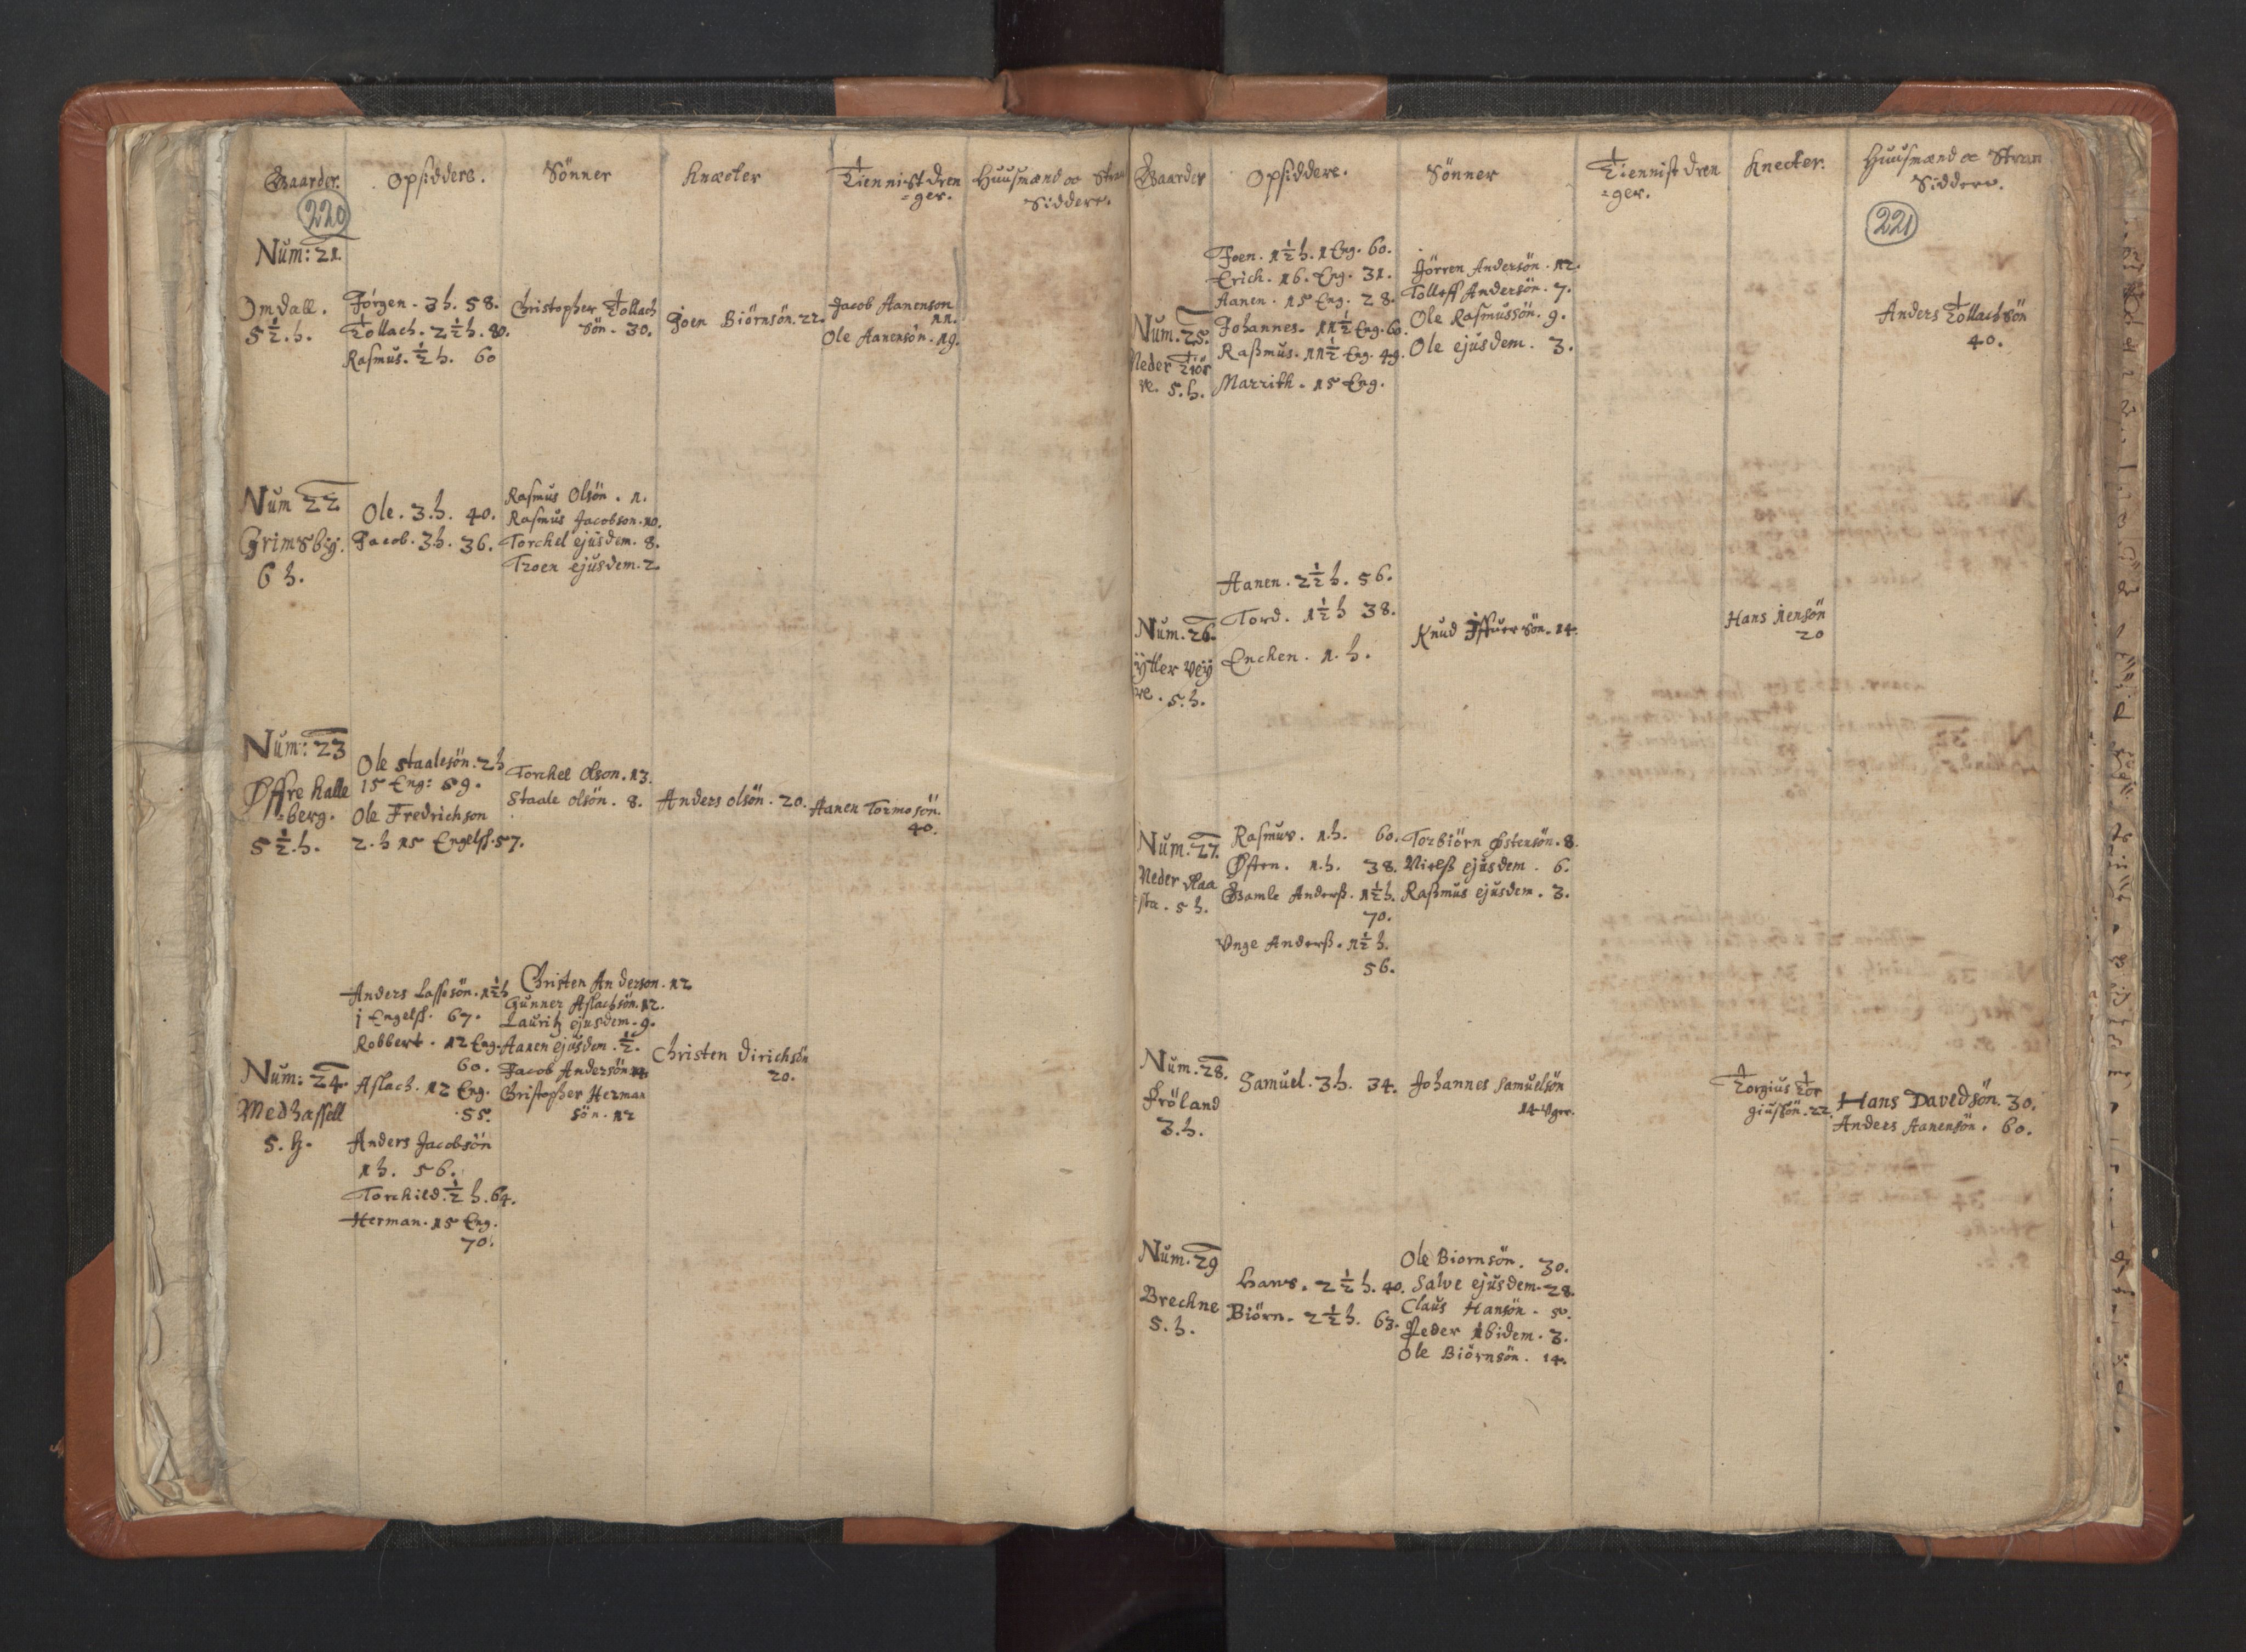 Gaarder.
Opsiddere.
Sönner
Knæcter
Tiennist dren
=ger.
Huusmænd oc Stran
Siddere.
220
Num: 21.
Omdall.
5½.h.
Jörgen. 3h. 58.
Tollach. 2½h. 80.
Rasmus. ½h. 60
Christopher Tollach
sön. 30.
Joen Biörnsön. 22.
Jacob Aanenson
11.
Ole Aanensön. 19.
Num 22
Grimsbÿ.
6 h.
Ole. 3.h. 40.
Jacob. 3h. 36.
Rasmus Olsön. 1.
Rasmus Jacobson. 10.
Torchel ejusdem. 8.
Troen ejusdem. 2
Num: 23
Øffre halle
=berg.
5½.h.
Ole Staalesön. 2h
15 Eng: 69.
Ole Fredrichson
2.h 15 Engelsk. 57.
Torchel Olson. 13.
Staale olsön. 8.
Anders olsön. 20.
Aanen Tormosön.
40.
Num: 24.
Medhassell
5.h.
Anders Lassesön. 1½h
j Engelsk. 67.
Robbert. 12 Eng.
60.
Aslach. 12 Eng.
55.
Anders Jacobsön
1h. 56.
Torchild. ½ h. 64.
Herman. 15 Eng.
70.
Christen Anderson. 12
Gunner Aslachsön. 12.
Lauritz ejusdem. 9.
Aanen ejusdem. ½.
Jacob Andersön
Christopher Herman
sön. 12
Christen Dirichsön
20.
Gaarder
Opsiddere.
Sönner
Tiennist dren
=ger.
Knecter.
Huusmænd oc Stran
Siddere.
221
Num. 25.
Neder Tiör
re. 5.h.
Joen. 1½h. 1 Eng. 60.
Erich. 16. Eng. 31.
Aanen. 15 Eng. 28.
Johannes. 11½ Eng. 60.
Rasmus. 11½ Eng. 49.
Marrith. 15 Eng.
Jörren Andersön. 12.
Tolleff Andersön. 7.
Ole Rasmussön. 9.
Ole ejusdem. 3.
Anders Tollachsön
40.
Num. 26.
ÿtter Veÿ
re. 5.h.
Aanen. 2½ h. 56.
Tord. 1½ h 38.
Enchen. 1.h.
Knud Iffuersön. 14.
Hans Jensön
20
Num. 27.
Neder slaa
sta. 5 h.
Rasmus. 1.h. 60.
Østen. 1.h. 38.
Gamle Anderss. 1½h.
70.
Unge Anderss. 1½ h.
56.
Torbiörn Østensön. 8.
Nielss ejusdem. 6.
Rasmus ejusdem. 3.
Num. 28.
Fröland
3.h.
Samuel. 3h. 34.
Johannes Samuelsön
14 Uger.
Torgius Tor
giussön. 22.
Hans Davedsön. 30.
Anders Aanensön. 60.
Num. 29
Brechne
5.h.
Hans. 2½ h. 40.
Biörn. 2½h. 63.
Ole Biornsön. 30.
Salve ejusdem. 28.
Claus Hansön.
Peder Ibidem. 3.
Ole Biörnsön. 14.